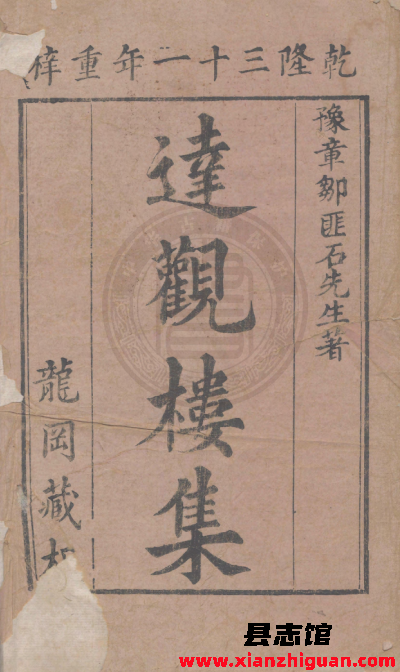 乾隆三十一年重梓
豫章鄒匪石先生著
達觀樓集
龍岡藏
县志馆
www.xianzhiguan.com